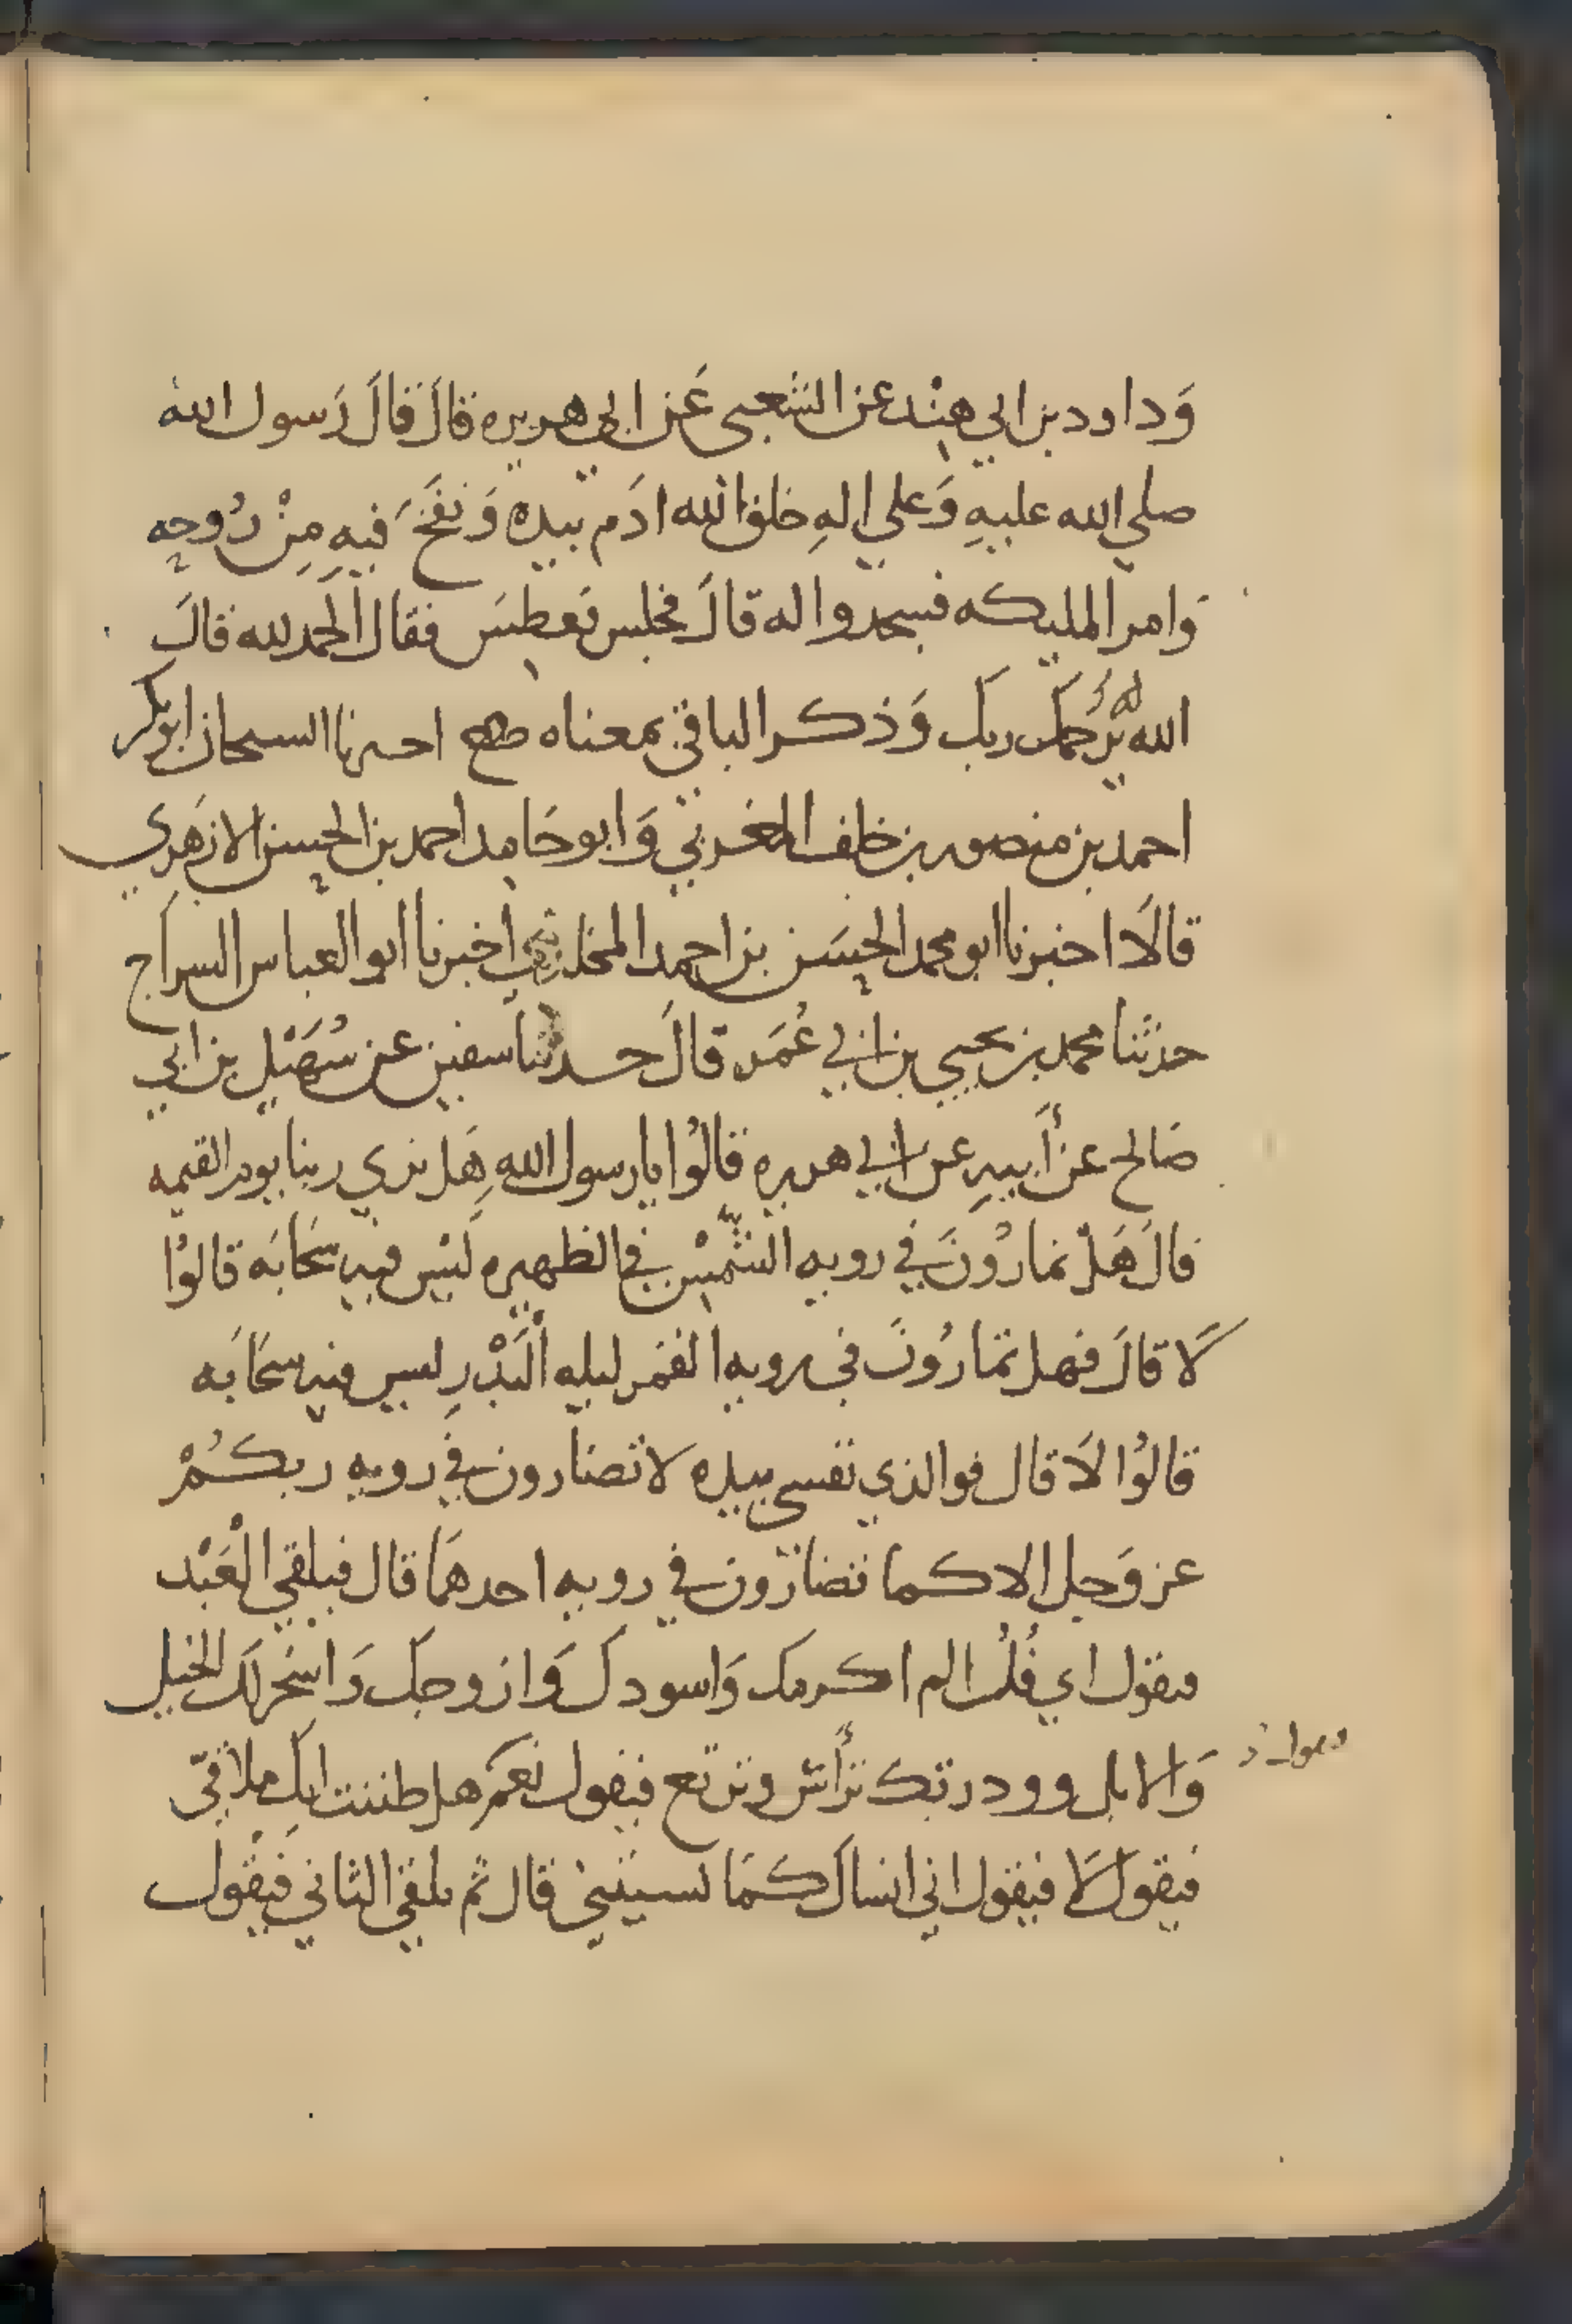 وَداود بن ابي هِنْد عن الشعبي عَن ابي هريره قالَ قالَ رَسول الله
صلي الله عليهِ وَعلي الهِ خلق الله ادَم بيده وَنفَخَ فيهِ مِنْ رُوحِه
وَامر المليكه فسجدوا له قالَ فجلس فعطسَ فقال الحمد لله قالَ
الله يَرْحُمَك ربك وَذكر الباقي بمعناه صح احبرنا السحان ابو بكر
احمد بن منصور بن خلف المغربي وَابو حَامِد احمد بن الحسن الازهَري
قالَا اخبرنا ابو محمد الحسَن بن احمد المخلدي اخبرنا ابو العباس السراج
حدثنا محمد بن يحيي بن ابي عُمَر قالَ حدثنا سفين عن سُهَيْل بن ابي
صَالح عن أَبيهِ عن ابي هريره قالُوا يا رسول اللهِ هَل نري ربنا يوم القيمه
قالَ هَلْ تمارُونَ في رويه الشَّمْس في الظهيره لَيْس فيه سَحَابَه قالوُا
لَا قالَ فهل تمَارُونَ في رويه القمَر ليله الْبَدْرِ ليس فيه سحَابَه
قالوُا لَا قال فوالذي نفسي بيده لا تضارون في رويه ربكُمْ
عز وَجل الا كما تضارّون في رويه احدهمَا قال فيلقي الْعَبْد
فيقول اي فُلُ الم اكرمك وَاسودك وَازوجك وَاسخر لَك الخيل
وَالابل وودرتك ترأَس وتربع فيقول نعم هل ظننت انك ملاقيّ
فيقولَ لَا فيقول اني انساك كمَا نسيتني قال ثم يلقي الثاني فَيقْول